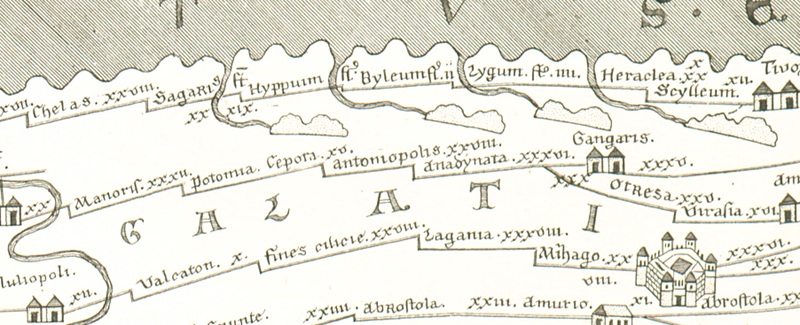 V S. a
xvii. Chelas. xxviii. Sagaris fl. Hyppuim fl. Byleum fl. ii Zygum. fl. iiii. Heraclea. xx xii. Tivo
Scylleum.
xx xix.
Gangaris.
Manoris. xxxii. Potomia Cepora. xv. Antoniopolis. xxviii. Anadynata. xxxvi. xxxv.
xxx Otresa. xxv. Virasia. xvi
xx
G A L A T I
Iuliopoli. xii. Valcaton. x. Fines cilicie. xxviii. Lagania. xxxviii. Mihago. xx xxxvi.
viii. xxx.
xxiii. Abrostola. xxiii. Amurio. xi. abrostola. xx